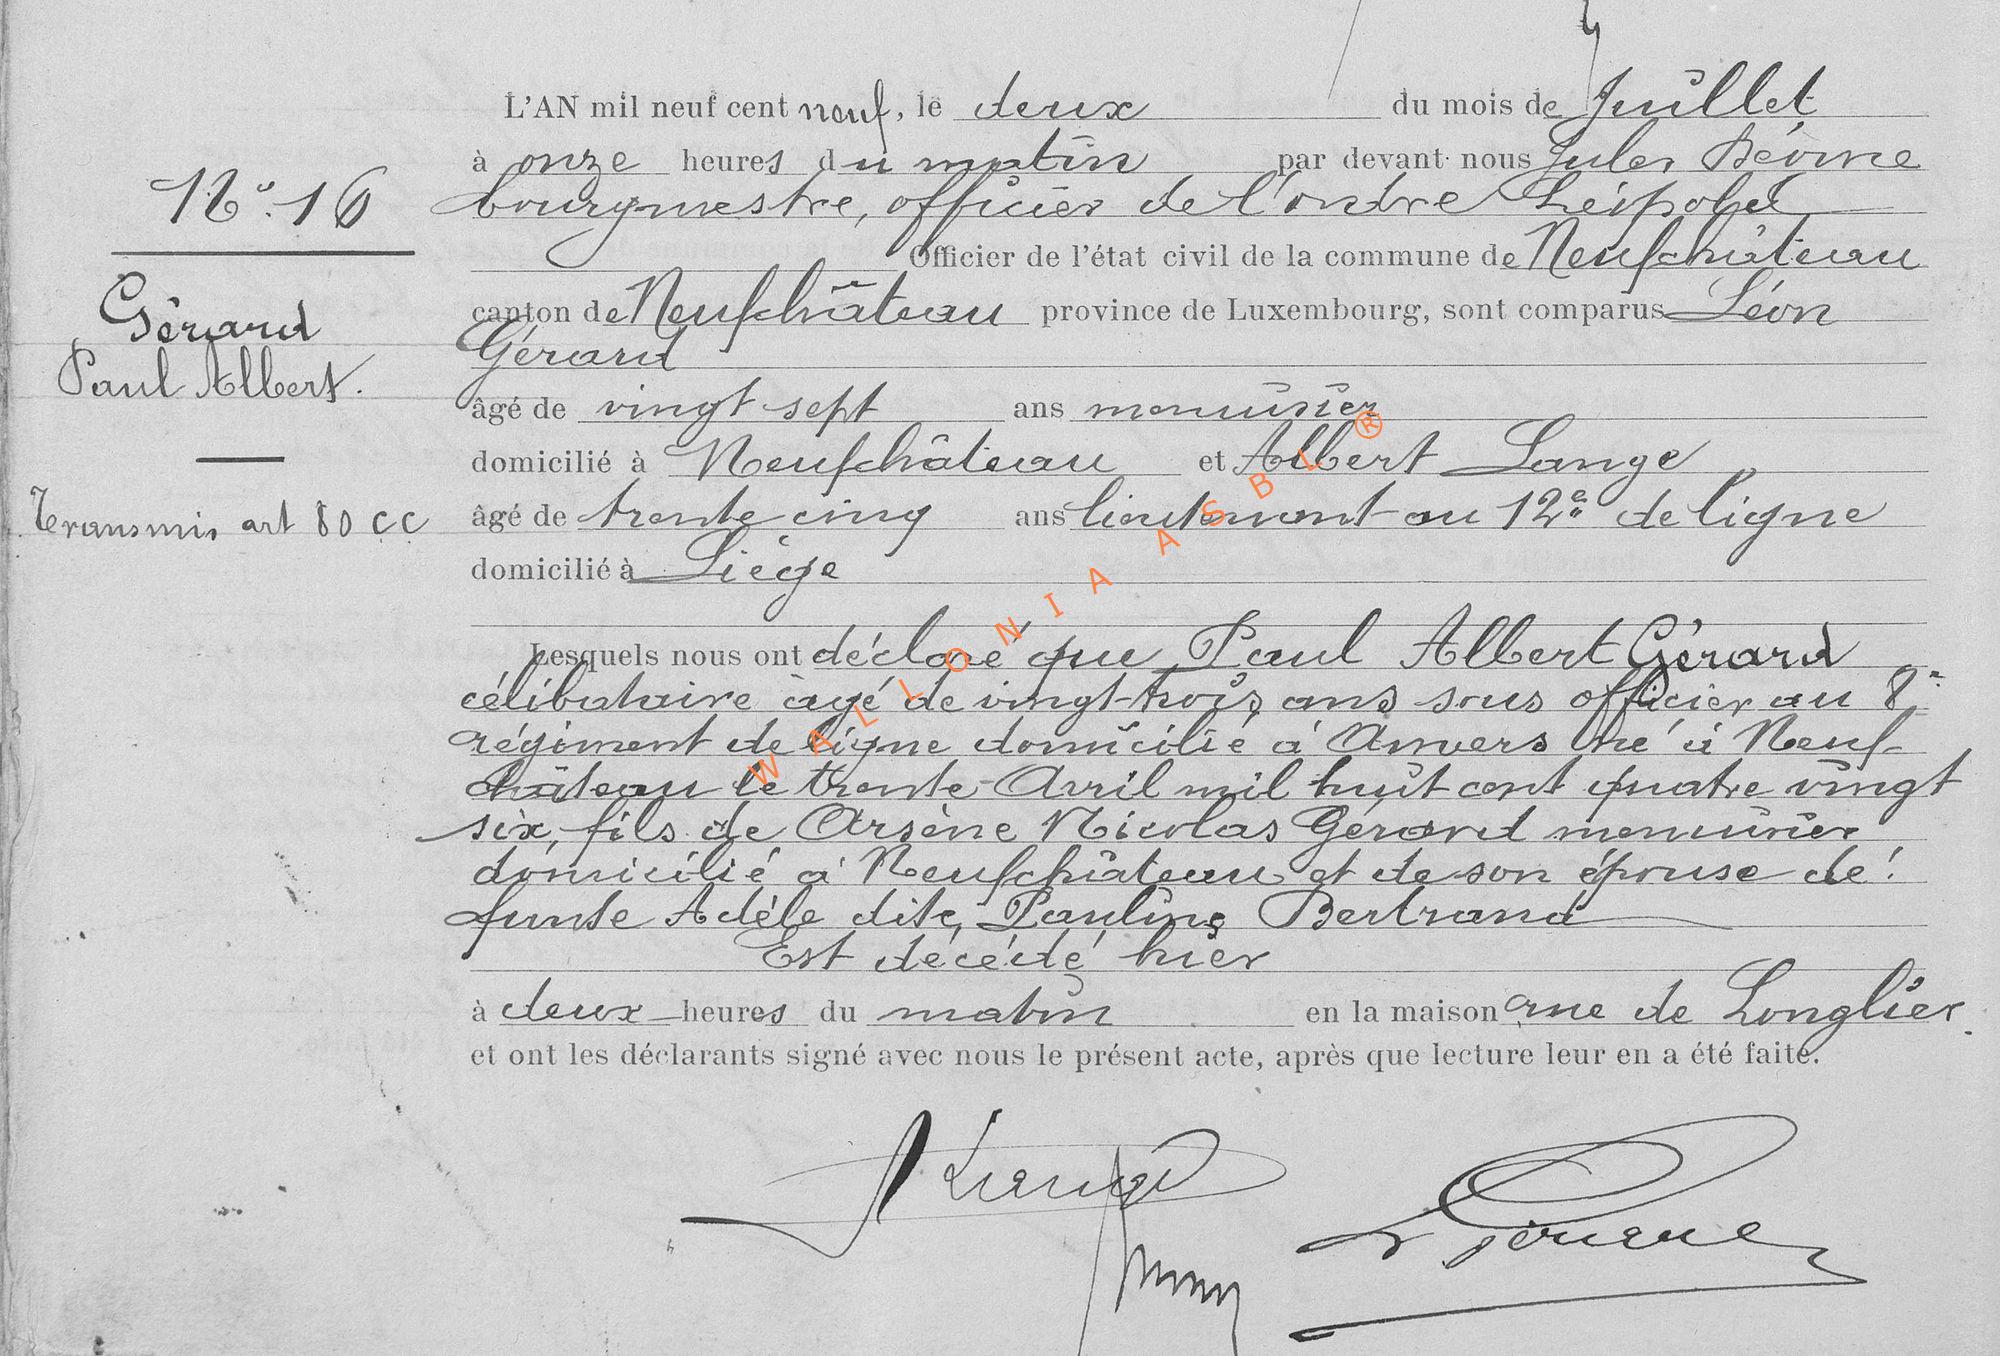 L'AN mil neuf cent neuf, le deux du mois de Juillet
à onze heures du matin par devant nous Jules
bourgmestre, officier de l'ordre Léopold
Officier de l'état civil de la commune de Neufchâteau
canton de Neufchâteau province de Luxembourg, sont comparus Léon
Gérard
âgé de vingt sept ans menuisier
domicilié à Neufchâteau et Albert Lange
âgé de trente cinq ans lieutenant au 12e de ligne
domicilié à Liège
Lesquels nous ont déclaré que Paul Albert Gérard
célibataire âgé de vingt-trois ans sous officier au 8e
régiment de ligne domicilié à Anvers né à Neuf-
château le trente Avril mil huit cent quatre vingt
six, fils de Arsène Nicolas Gérard menuisier
domicilié à Neufchâteau et de son épouse dé-
funte Adèle dite Pauline Bertrand
Est décédé hier
à deux heures du matin en la maison rue de Longlier
et ont les déclarants signé avec nous le présent acte, après que lecture leur en a été faite.
No. 16
Gérard
Paul Albert.
Transmis art 80 CC
WALLONIA ASBL ®
ALange
LGérard